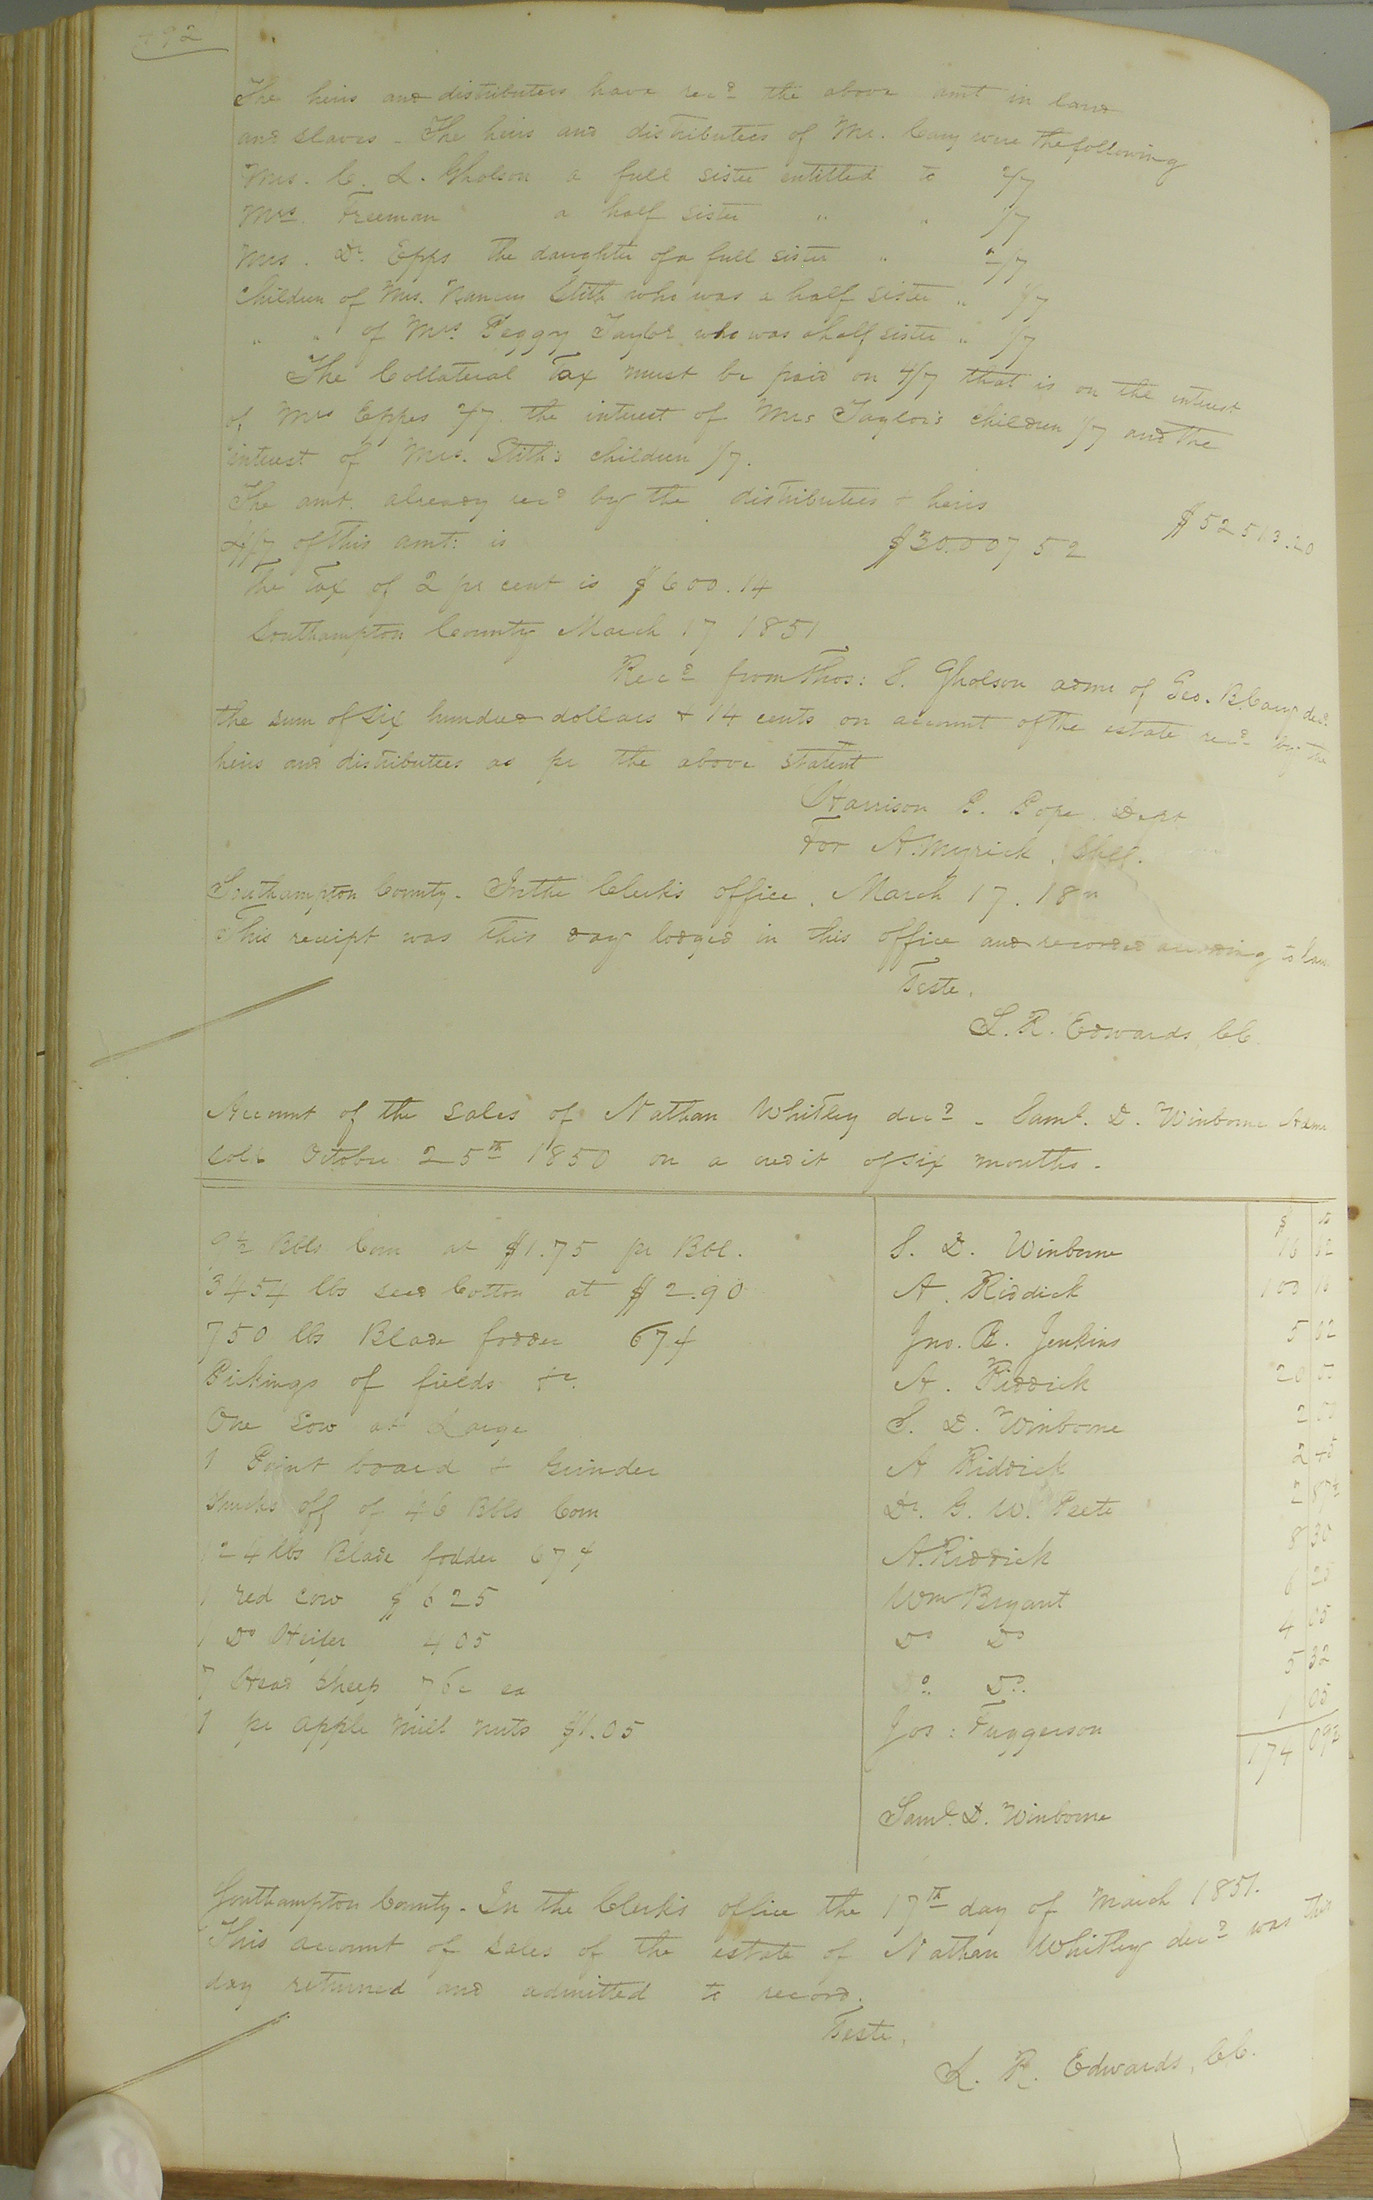 492
The heirs and distributees have recd the above amt in land
and slaves - The heirs and distributees of Mr. Cary were the following
Mrs. C. L. Gholson a full sister entitled to 2/7
Mrs. Freeman a half sister " " 1/7
Mrs. Dr. Epps the daughter of a full sister " 2/7
Children of Mrs. Nancy Stith who was a half sister " 1/7
" " of Mrs Peggy Taylor who was a half sister " 1/7
The Collateral Tax must be paid on 4/7 that is on the interest
of Mrs Eppes 2/7 the interest of Mrs Taylors children 1/7 and the
interest of Mrs. Stith's children 1/7.
The amt. already recd by the distributees & heirs $52513.20
4/7 of this amt: is $30.007 52
The Tax of 2 pr cent is $600.14
Southampton County March 17 1851
Recd from Thos: S. Gholson admr of Geo. B. Cary decd
the sum of six hundred dollars & 14 cents on account of the estate recd by the
heirs and distributees as pr the above statent
Harrison P. Pope Dept
For A. Myrick, Shff.
Southampton County - In the Clerks office, March 17. 18
This receipt was this day lodged in this office and recorded according to law
Teste.
L. R. Edwards CC
Account of the sales of Nathan Whitley decd - Saml. D. Winborne Admr
sold October 25th 1850 on a credit of six months -
$ cts
9½ Bbls Corn at $1.75 pr Bbl. S. D. Winborne 16 62
3454 lbs seed Cotton at $2.90 A. Riddick 100 16
750 lbs Blade fodder 674 Jno. B. Jenkins 5 02
Pickings of fields &c. A. Riddick 20 50
One Sow at Large S. D. Winborne 2 00
1 Point board & Grinder A Riddick 2 45
Shucks off of 46 Bbls Corn Dr. G. W. Peete 2 87½
124 lbs Blade fodder 674 A. Riddick 8 30
1 red Cow $6 25 Wm Bryant 6 25
1 Do Heifer 4 05 Do Do 4 05
7 Head Sheep 76c ea Do Do. 5 32
1 pr apple mill nuts $1.05 Jos: Fuggerson 1 05
174 09½
Saml. D. Winborne
Southampton County - In the Clerks office the 17th day of March 1851.
This account of sales of the estate of Nathan Whitley decd was this
day returned and admitted to record.
Teste.
L. R. Edwards, CC.